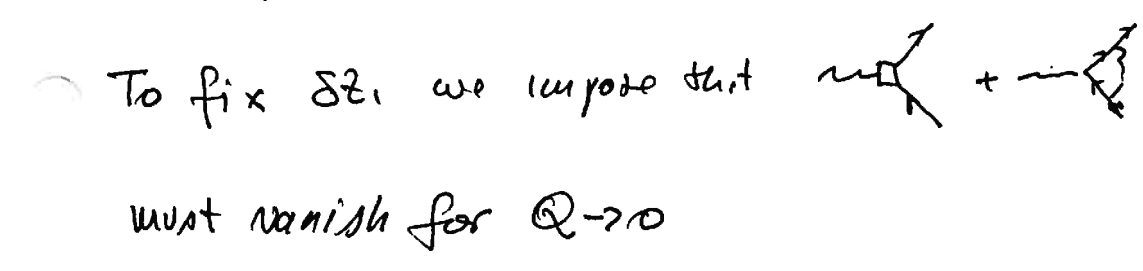 To fix δZ₁ we impose that +
must vanish for Q->0